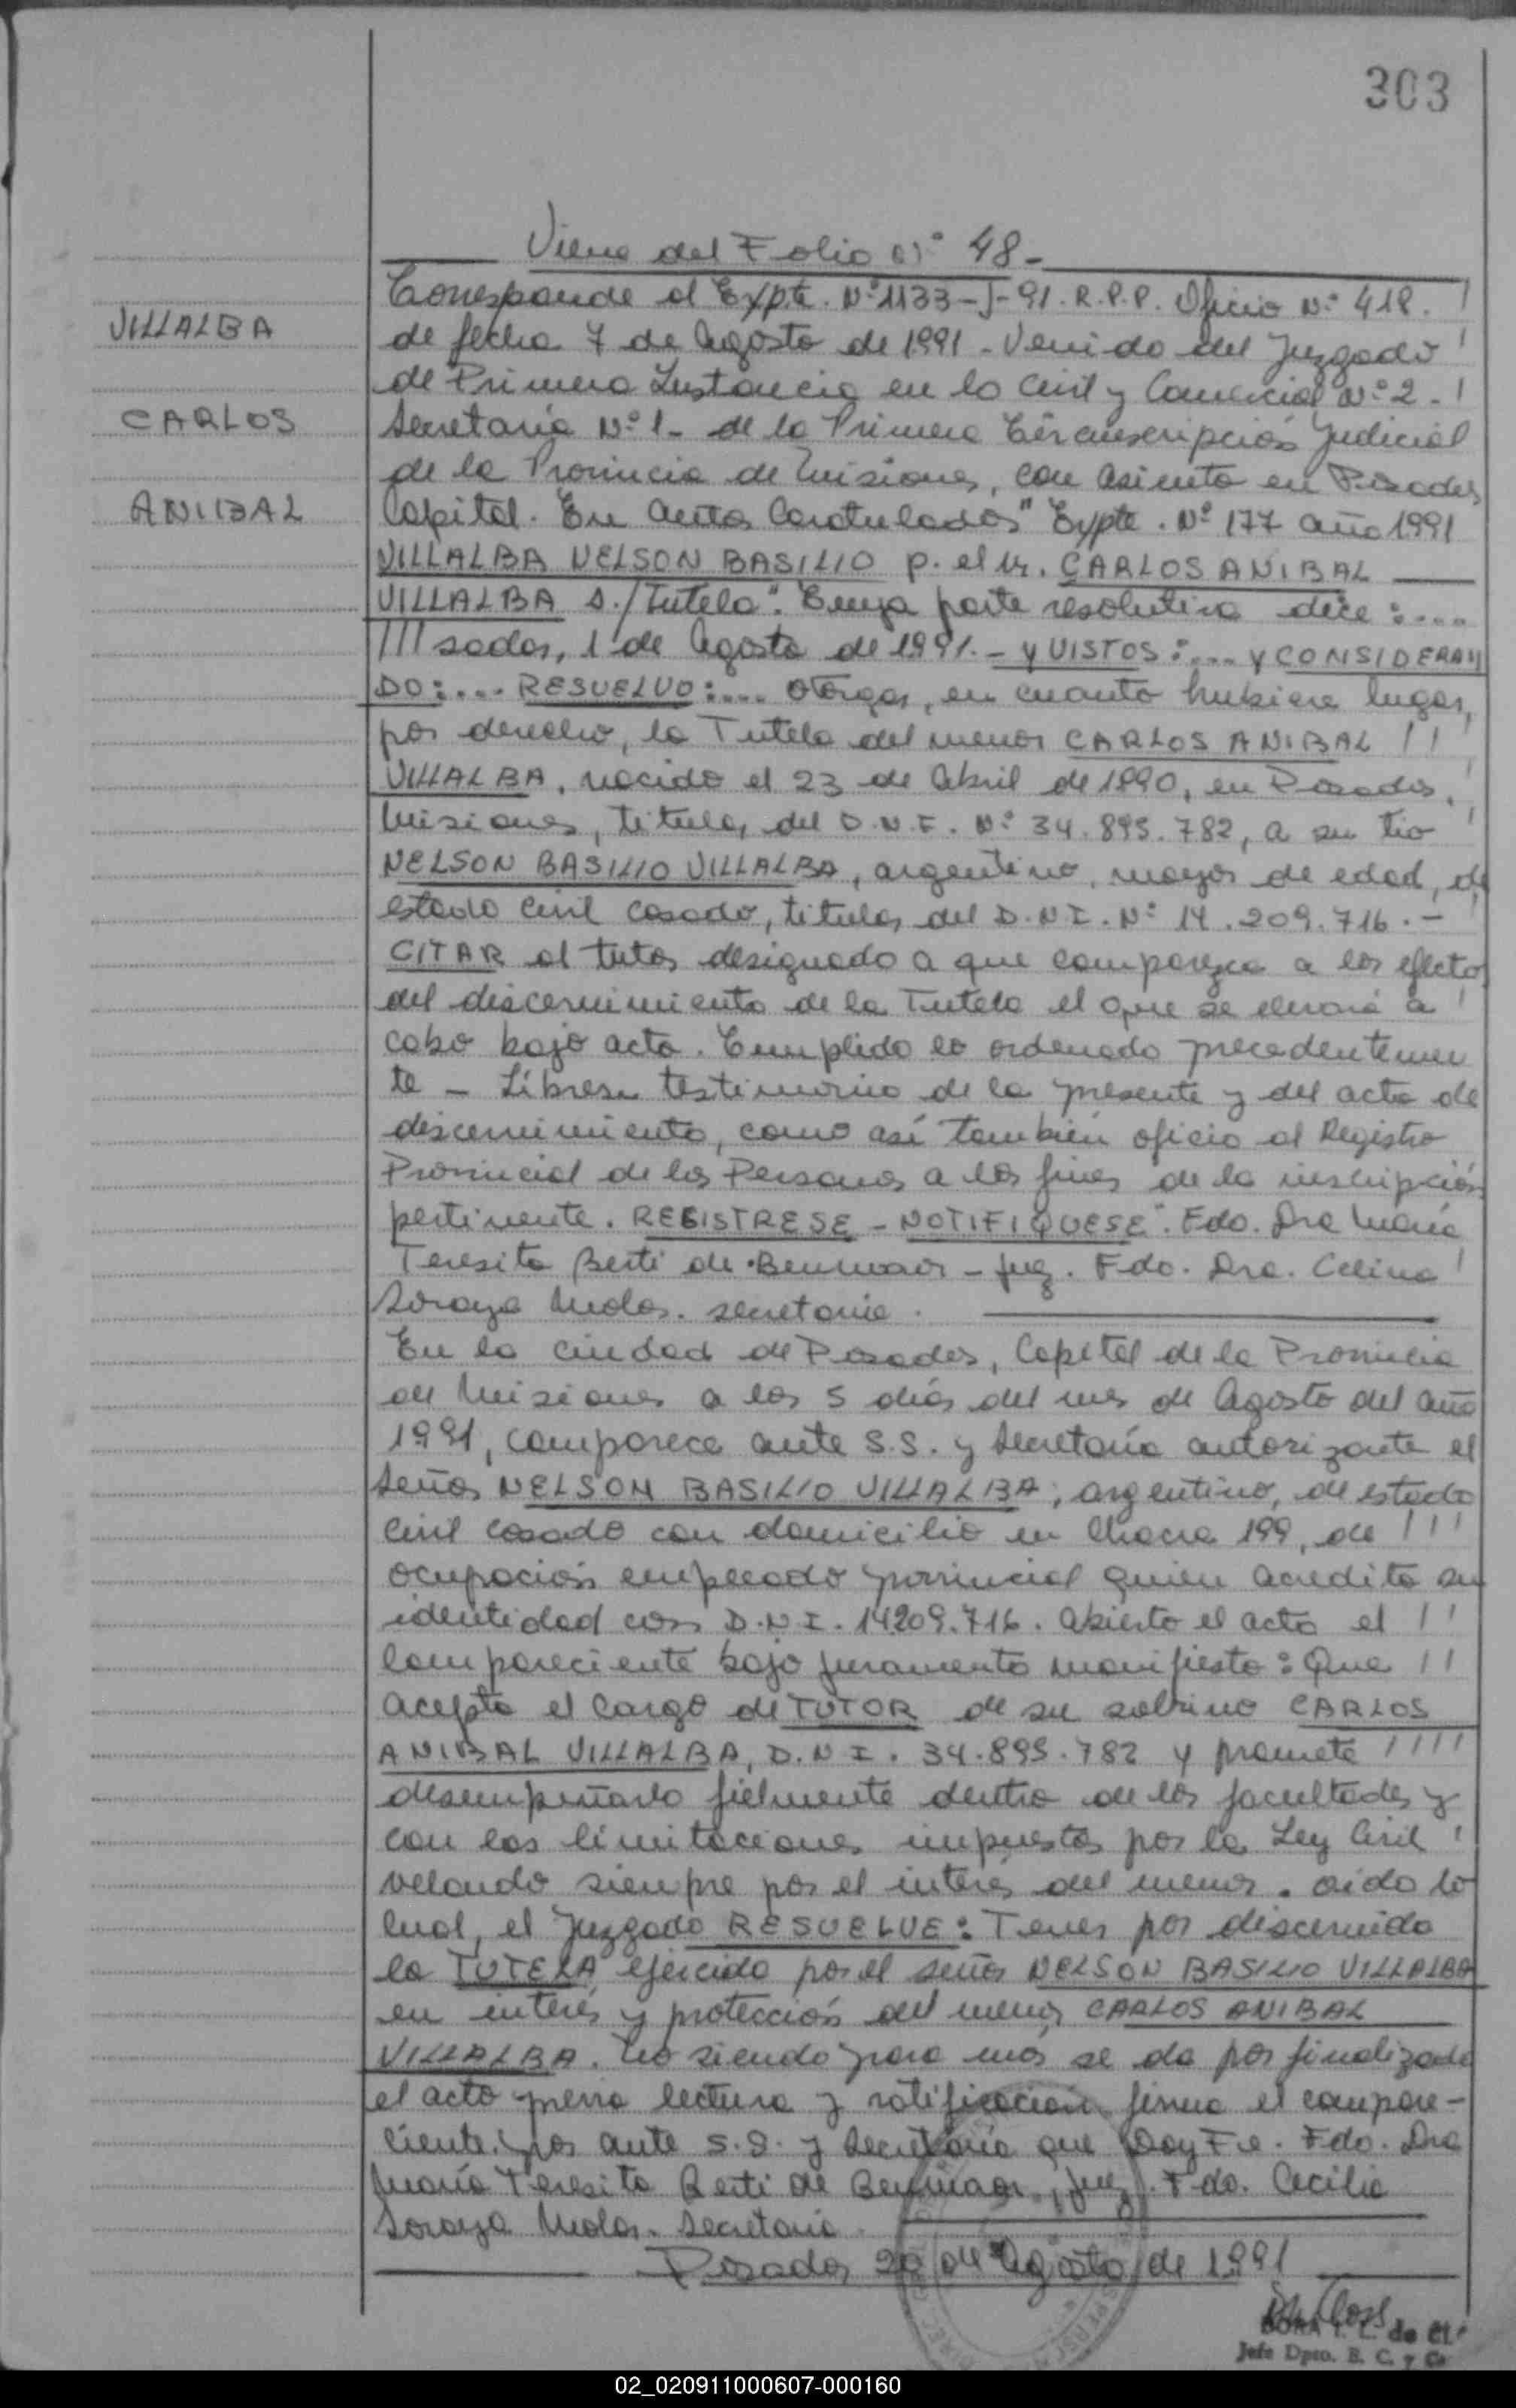 303
Viene del Folio Nº 48-
Corresponde al Expte. Nº 1133-J-91. R.P.P. Oficio Nº 418.
VILLALBA
de fecha 7 de Agosto de 1991 - Venido del Juzgado
de Primera Instancia en lo Civil y Comercial Nº 2 -
CARLOS
Secretaría Nº 1 - de la Primera Circunscripción Judicial
de la Provincia de Misiones, con asiento en Posadas
ANIBAL
Capital. En autos Caratulados "Expte. Nº 177 año 1991
VILLALBA NELSON BASILIO p. el M. CARLOS ANIBAL
VILLALBA S./Tutela". Cuya parte resolutiva dice:....
///sadas, 1 de Agosto de 1991.- Y VISTOS:.... Y CONSIDERAN
DO:.... RESUELVO:.... Otorgar, en cuanto hubiere lugar,
por derecho, la Tutela del menor CARLOS ANIBAL !!
VILLALBA, nacido el 23 de Abril de 1990, en Posadas,
Misiones, titular del D.N.I. Nº 34.895.782, a su tío
NELSON BASILIO VILLALBA, argentino, mayor de edad, de
estado civil casado, titular del D.N.I. Nº 14.209.716.-
CITAR al tutor designado a que comparezca a los efectos
del discernimiento de la Tutela el que se llevará a
cabo bajo acta. Cumplido lo ordenado precedentemen
te - Líbrese testimonio de la presente y del acta de
discernimiento, como así también oficio al Registro
Provincial de las Personas a los fines de la inscripción
pertinente. REGISTRESE - NOTIFIQUESE". Fdo. Dra María
Teresita Berti de Benmaor - Juez. Fdo. Dra. Celina
Soraya Molas. secretaria.
En la ciudad de Posadas, Capital de la Provincia
de Misiones a los 5 días del mes de Agosto del año
1991, comparece ante S.S. y Secretaría autorizante el
señor NELSON BASILIO VILLALBA, argentino, de estado
civil casado con domicilio en Chacra 199, de !!!
ocupación empleado provincial quien acredita su
identidad con D.N.I. 14209.716. abierto el acto el !!
compareciente bajo juramento manifiesta: Que !!
acepta el cargo de TUTOR de su sobrino CARLOS
ANIBAL VILLALBA, D.N.I. 34.895.782 y promete !!!!
desempeñarlo fielmente dentro de las facultades y
con las limitaciones impuestas por la Ley Civil !
velando siempre por el interés del menor. oido lo
cual, el Juzgado RESUELVE: Tener por discernida
la TUTELA ejercida por el señor NELSON BASILIO VILLALBA
en interés y protección del menor CARLOS ANIBAL
VILLALBA. No siendo para más se da por finalizado
el acto previa lectura y ratificación firma el compare-
ciente. por ante S.S. y Secretaría que Doy Fe. Fdo. Dra
María Teresita Berti de Benmaor, juez. Fdo. Cecilia
Soraya Molas. Secretaria.
Posadas 20 de Agosto de 1991
DORA de
Jefe Dpto. B. C. y
02_020911000607-000160